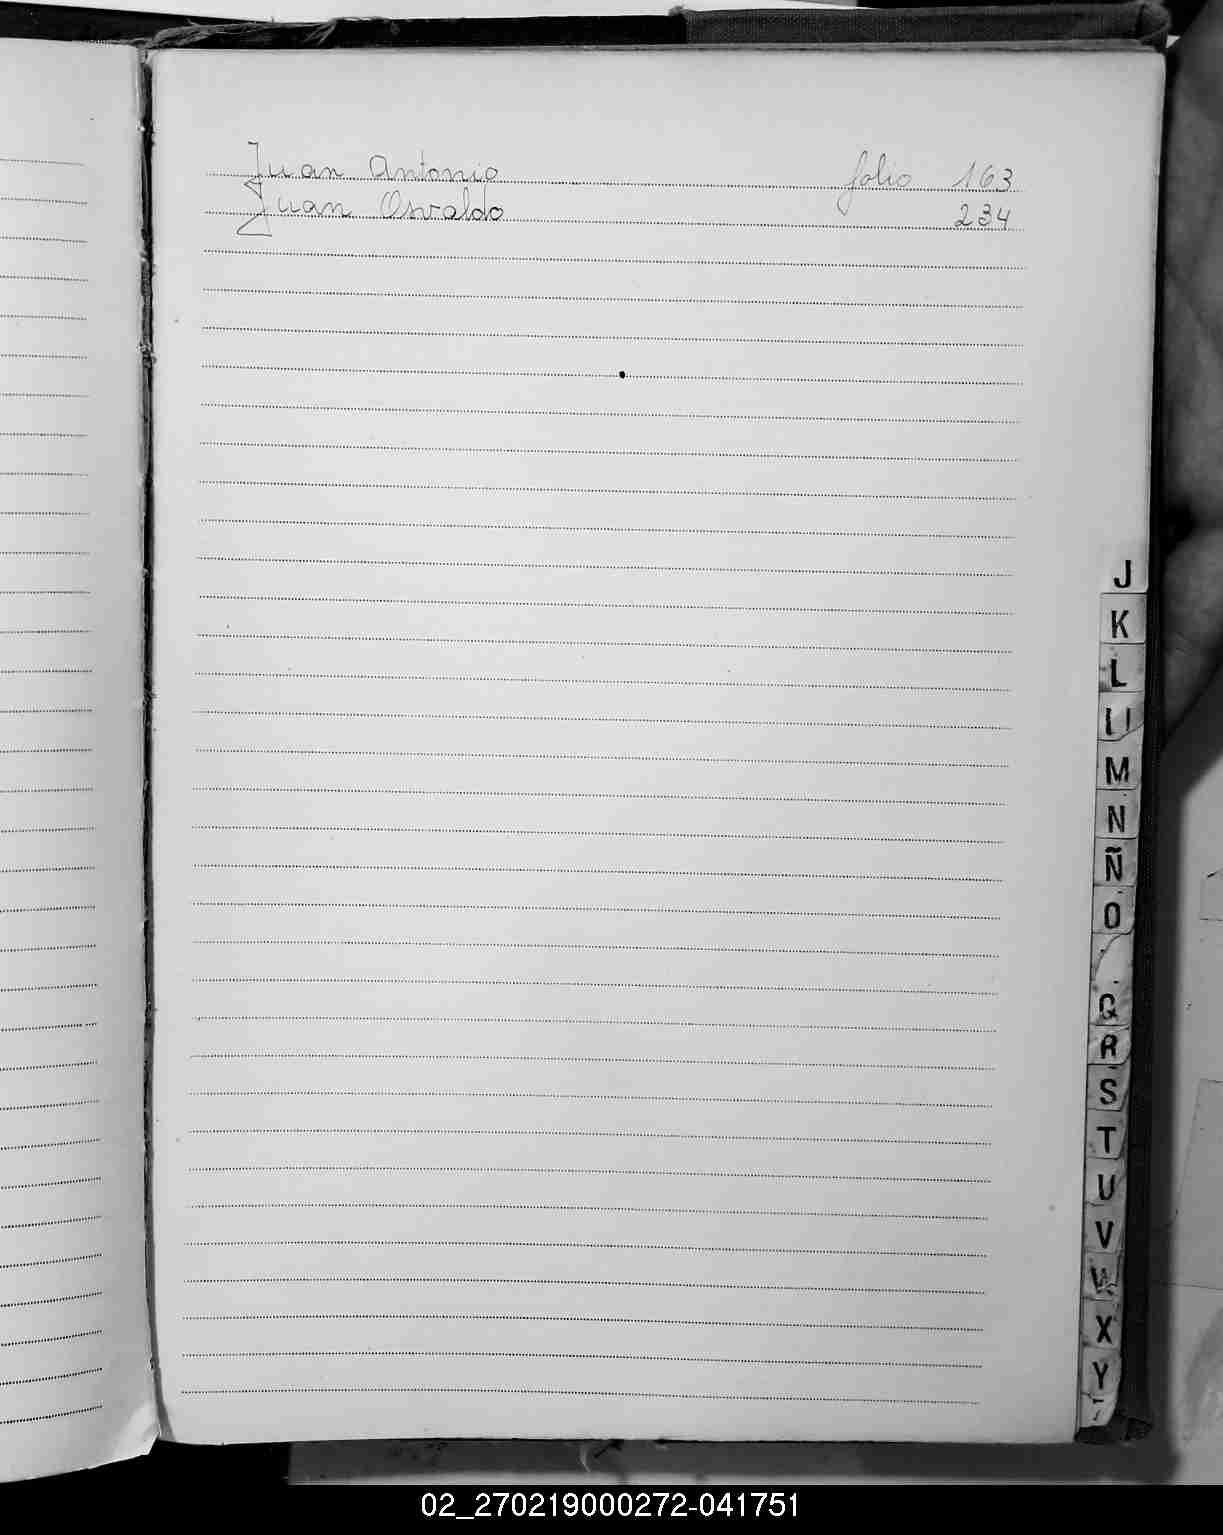 Juan Antonio folio 163
Juan Osvaldo 234
J
K
L
M
N
Ñ
O
Q
R
S
T
U
V
W
X
Y
02_270219000272-041751